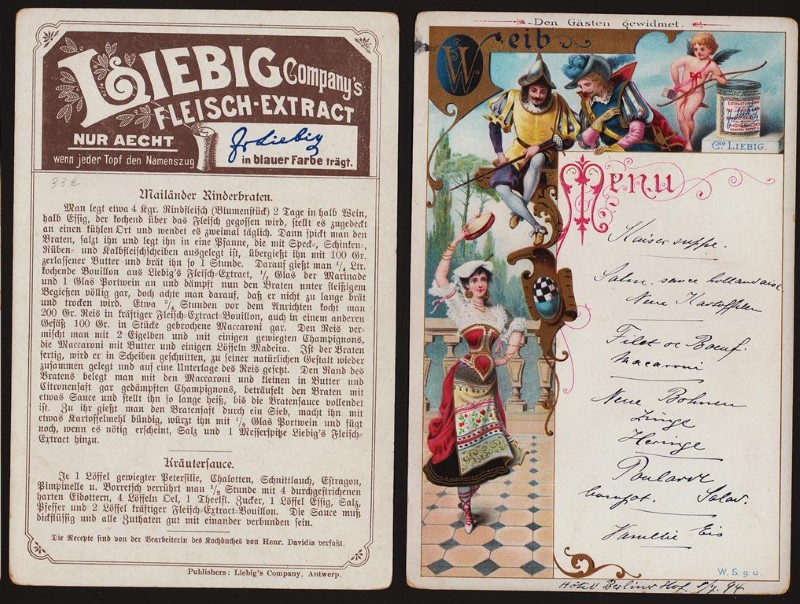 LIEBIG Company's
FLEISCH-EXTRACT
NUR AECHT
wenn jeder Topf den Namenszug
JvLiebig
in blauer Farbe trägt.
33 €
Mailänder Rinderbraten.
Man legt etwa 4 Kgr. Rindfleisch (Blumenstück) 2 Tage in halb Wein,
halb Essig, der kochend über das Fleisch gegossen wird, stellt es zugedeckt
an einen kühlen Ort und wendet es zweimal täglich. Dann spickt man den
Braten, salzt ihn und legt ihn in eine Pfanne, die mit Speck-, Schinken-,
Rüben- und Kalbfleischscheiben ausgelegt ist, übergießt ihn mit 100 Gr.
zerlassener Butter und brät ihn so 1 Stunde. Darauf gießt man 1/4 Ltr.
kochende Bouillon aus Liebig's Fleisch-Extract, 1/2 Glas der Marinade
und 1 Glas Portwein an und dämpft nun den Braten unter fleißigem
Begießen völlig gar, doch achte man darauf, daß er nicht zu lange brät
und trocken wird. Etwa 3/4 Stunden vor dem Anrichten kocht man
200 Gr. Reis in kräftiger Fleisch-Extract-Bouillon, auch in einem anderen
Gefäß 100 Gr. in Stücke gebrochene Maccaroni gar. Den Reis ver-
mischt man mit 2 Eigelben und mit einigen gewiegten Champignons,
die Maccaroni mit Butter und einigen Löffeln Madeira. Ist der Braten
fertig, wird er in Scheiben geschnitten, zu seiner natürlichen Gestalt wieder
zusammen gelegt und auf eine Unterlage des Reis gesetzt. Den Rand des
Bratens belegt man mit den Maccaroni und kleinen in Butter und
Citronensaft gar gedämpften Champignons, beträufelt den Braten mit
etwas Sauce und stellt ihn so lange heiß, bis die Bratensauce vollendet
ist. Zu ihr gießt man den Bratensaft durch ein Sieb, macht ihn mit
etwas Kartoffelmehl bündig, würzt ihn mit 1/2 Glas Portwein und fügt
noch, wenn es nötig erscheint, Salz und 1 Messerspitze Liebig's Fleisch-
Extract hinzu.
Kräutersauce.
Je 1 Löffel gewiegter Petersilie, Chalotten, Schnittlauch, Estragon,
Pimpinelle u. Borretsch verrührt man 1/2 Stunde mit 4 durchgestrichenen
harten Eidottern, 4 Löffeln Oel, 1 Theelfl. Zucker, 1 Löffel Essig, Salz,
Pfeffer und 2 Löffel kräftiger Fleisch-Extract-Bouillon. Die Sauce muß
dickflüssig und alle Zuthaten gut mit einander verbunden sein.
Die Recepte sind von der Bearbeiterin des Kochbuches von Henr. Davidis verfaßt.
Publishers: Liebig's Company, Antwerp.
Den Gästen gewidmet.
Weib
Cie LIEBIG.
Menu
Kaisersuppe.
Salm. sauce hollandaise
Neue Kartoffeln
Filet de Bœuf.
Macaroni
Neue Bohnen
Zunge
Heringe
Poularde
Compot. Salat.
Vanillie Eis
W. S. g. u.
Hôtel Berliner Hof. 8/7. 94